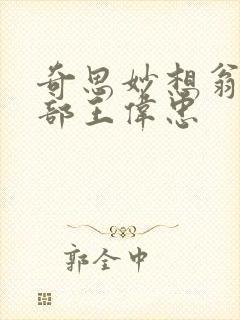 奇思妙想翁
部王偉忠
郭全中